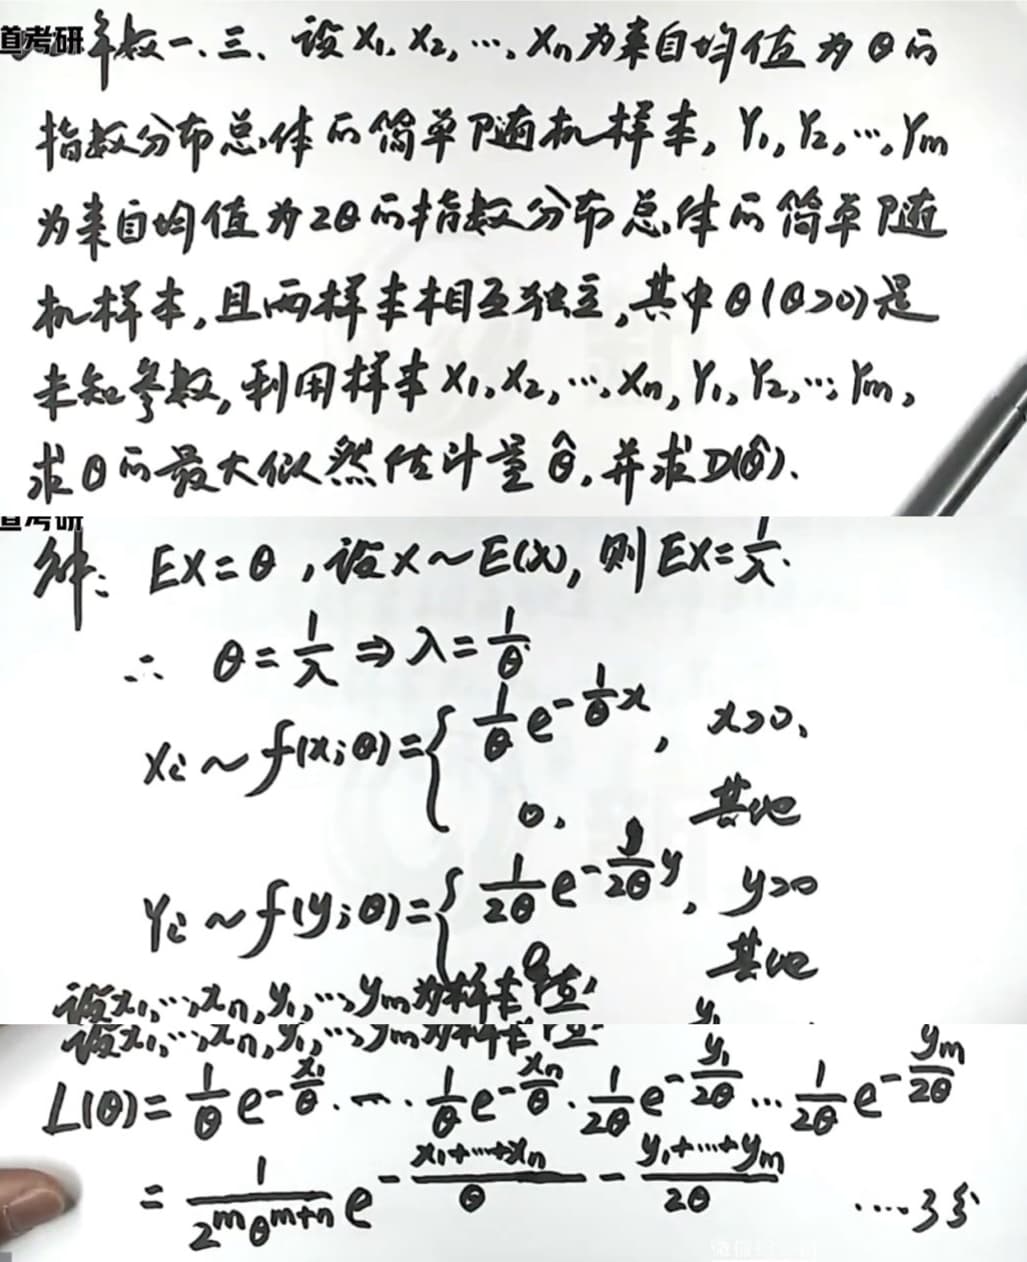 首考研年数一、三、设X₁, X₂, ⋯, Xₙ为来自均值为θ的
指数分布总体的简单随机样本, Y₁, Y₂, ⋯, Yₘ
为来自均值为2θ的指数分布总体的简单随
机样本, 且两样本相互独立, 其中θ(θ>0)是
未知参数, 利用样本X₁, X₂, ⋯, Xₙ, Y₁, Y₂, ⋯, Yₘ,
求θ的最大似然估计量θ̂, 并求D(θ̂).
考研
解: EX=θ, 设X~E(λ), 则EX=1/λ.
∴ θ=1/λ ⇒ λ=1/θ
Xᵢ ~ f(x;θ)={ 1/θ e^(-1/θ x), x>0,
0, 其他
Yᵢ ~ f(y;θ)={ 1/2θ e^(-1/2θ y), y>0
0 其他
设x₁, ⋯, xₙ, y₁, ⋯, yₘ为样本值
设x₁, ⋯, xₙ, y₁, ⋯, yₘ为样本值
L(θ)= 1/θ e^(-x₁/θ) ⋯ 1/θ e^(-xₙ/θ) · 1/2θ e^(-y₁/2θ) ⋯ 1/2θ e^(-yₘ/2θ)
= 1/(2^m θ^(m+n)) e^(-(x₁+⋯+xₙ)/θ - (y₁+⋯+yₘ)/2θ) ⋯⋯3分